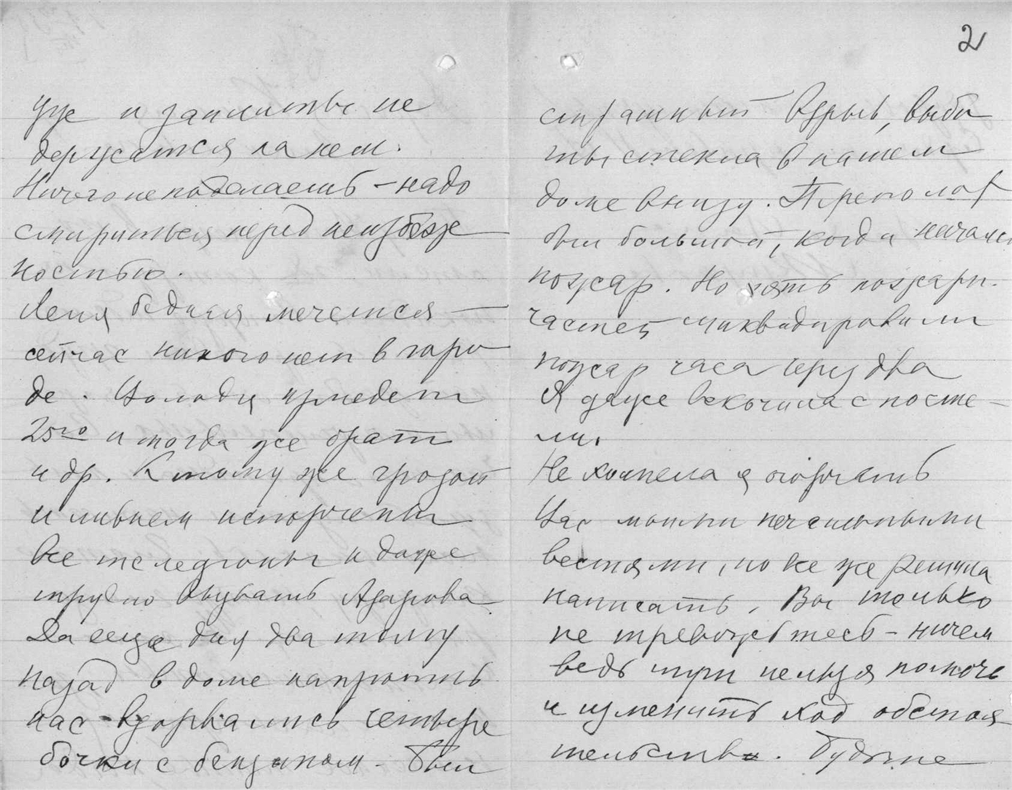 2
уже и заплаты не
держатся на нем.
Ничего не поделаешь – надо
смириться перед неизбеж
ностью.
Леля бедная мечется –
сейчас никого нет в горо
де. приедет
25го и тогда же брат
и др. К тому же грозой
и ливнем испорчены
все телефоны и даже
трудно вызвать Азарова.
Да еще дня два тому
назад в доме напротив
нас взорвались четыре
бочки с бензином. Был
страшный взрыв, выби
ты стекла в нашем
доме внизу. Переполох
был большой, когда начался
пожар. Но хоть пожарн.
части ликвидировали
пожар часа через два
Я даже вскочила с посте–
ли.
Не хотела я огорчать
Вас этими печальными
вестями, но все же решила
написать. Вы только
не тревожьтесь – ничем
ведь тут нельзя помочь
и изменить ход обстоя
тельств. Будьте